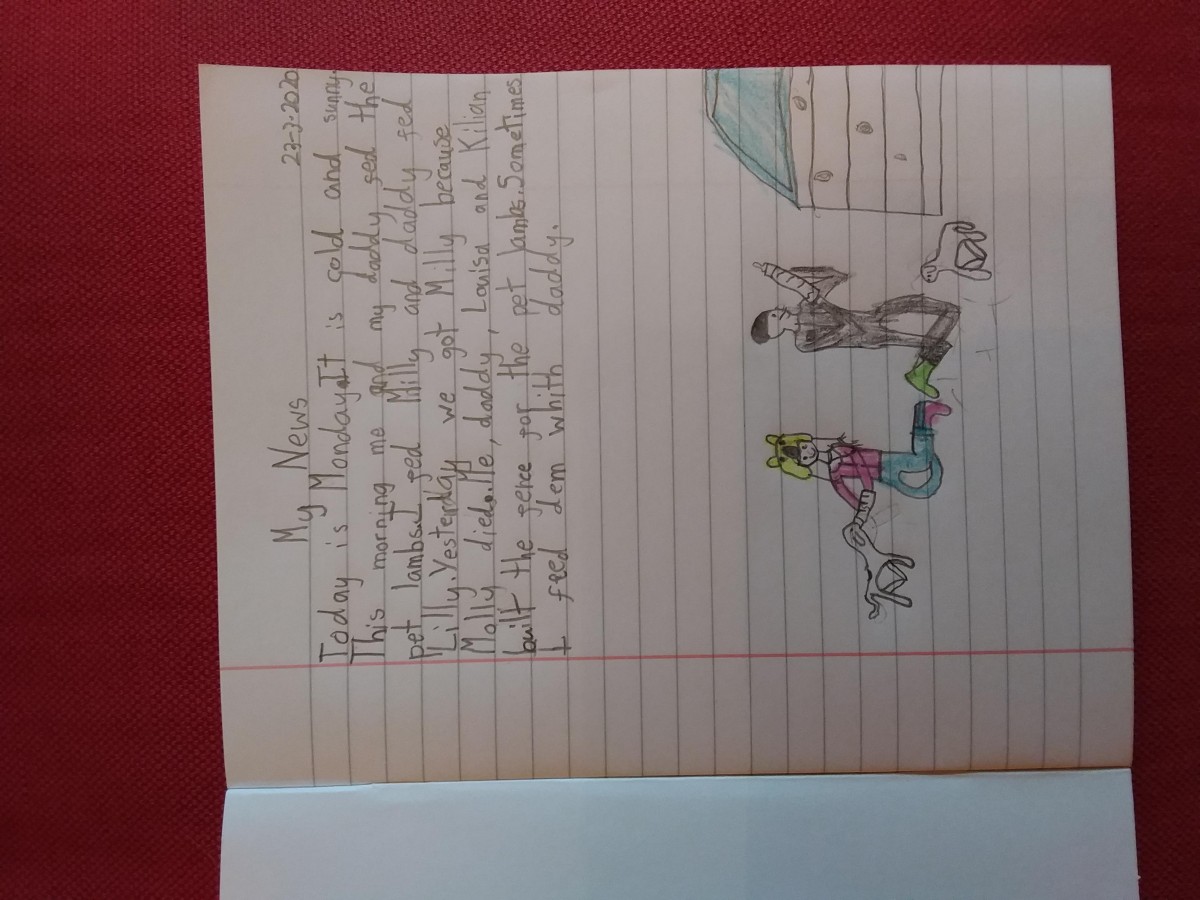 My News 23-3-2020
Today is Monday. It is cold and sunny.
This morning me and my daddy fed the
pet lambs. I fed Milly and daddy fed
Lilly. Yesterday we got Milly because
Molly died. Me, daddy, Louisa and Kilian
built the fence for the pet lambs. Sometimes
I feed dem whith daddy.